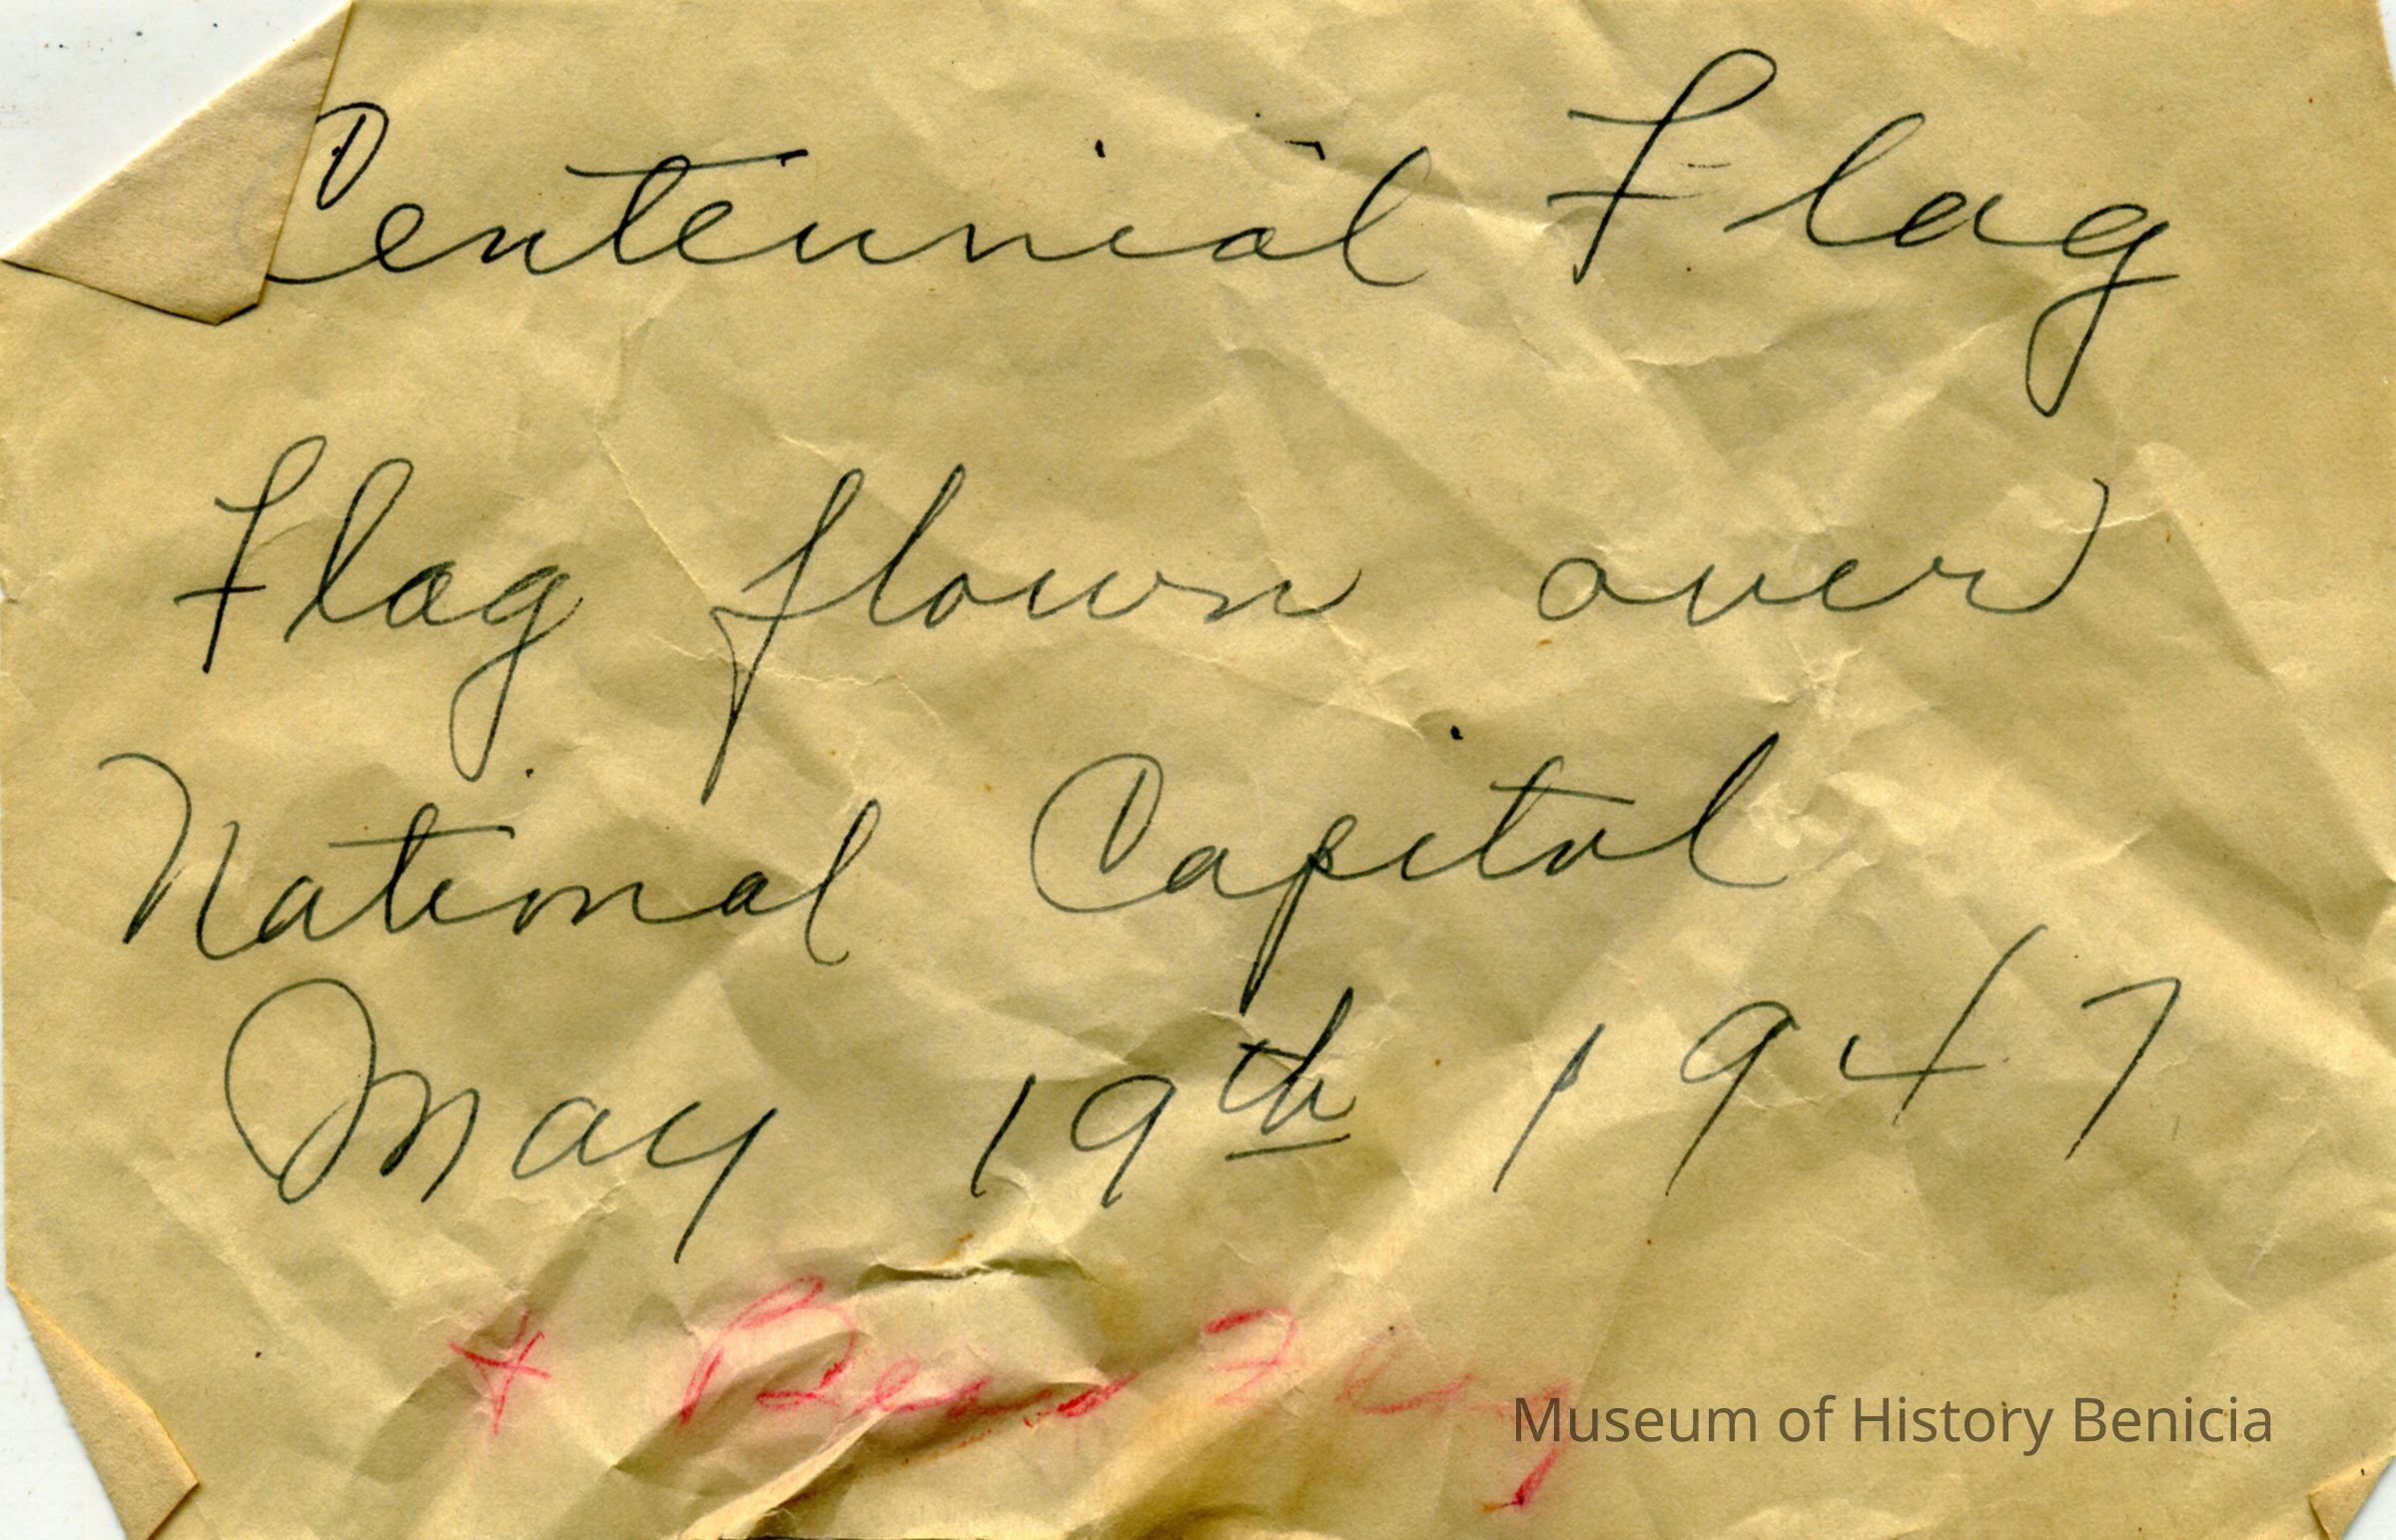 Centennial Flag
Flag flown over
National Capitol
May 19th 1947
+ Bear Flag
Museum of History Benicia